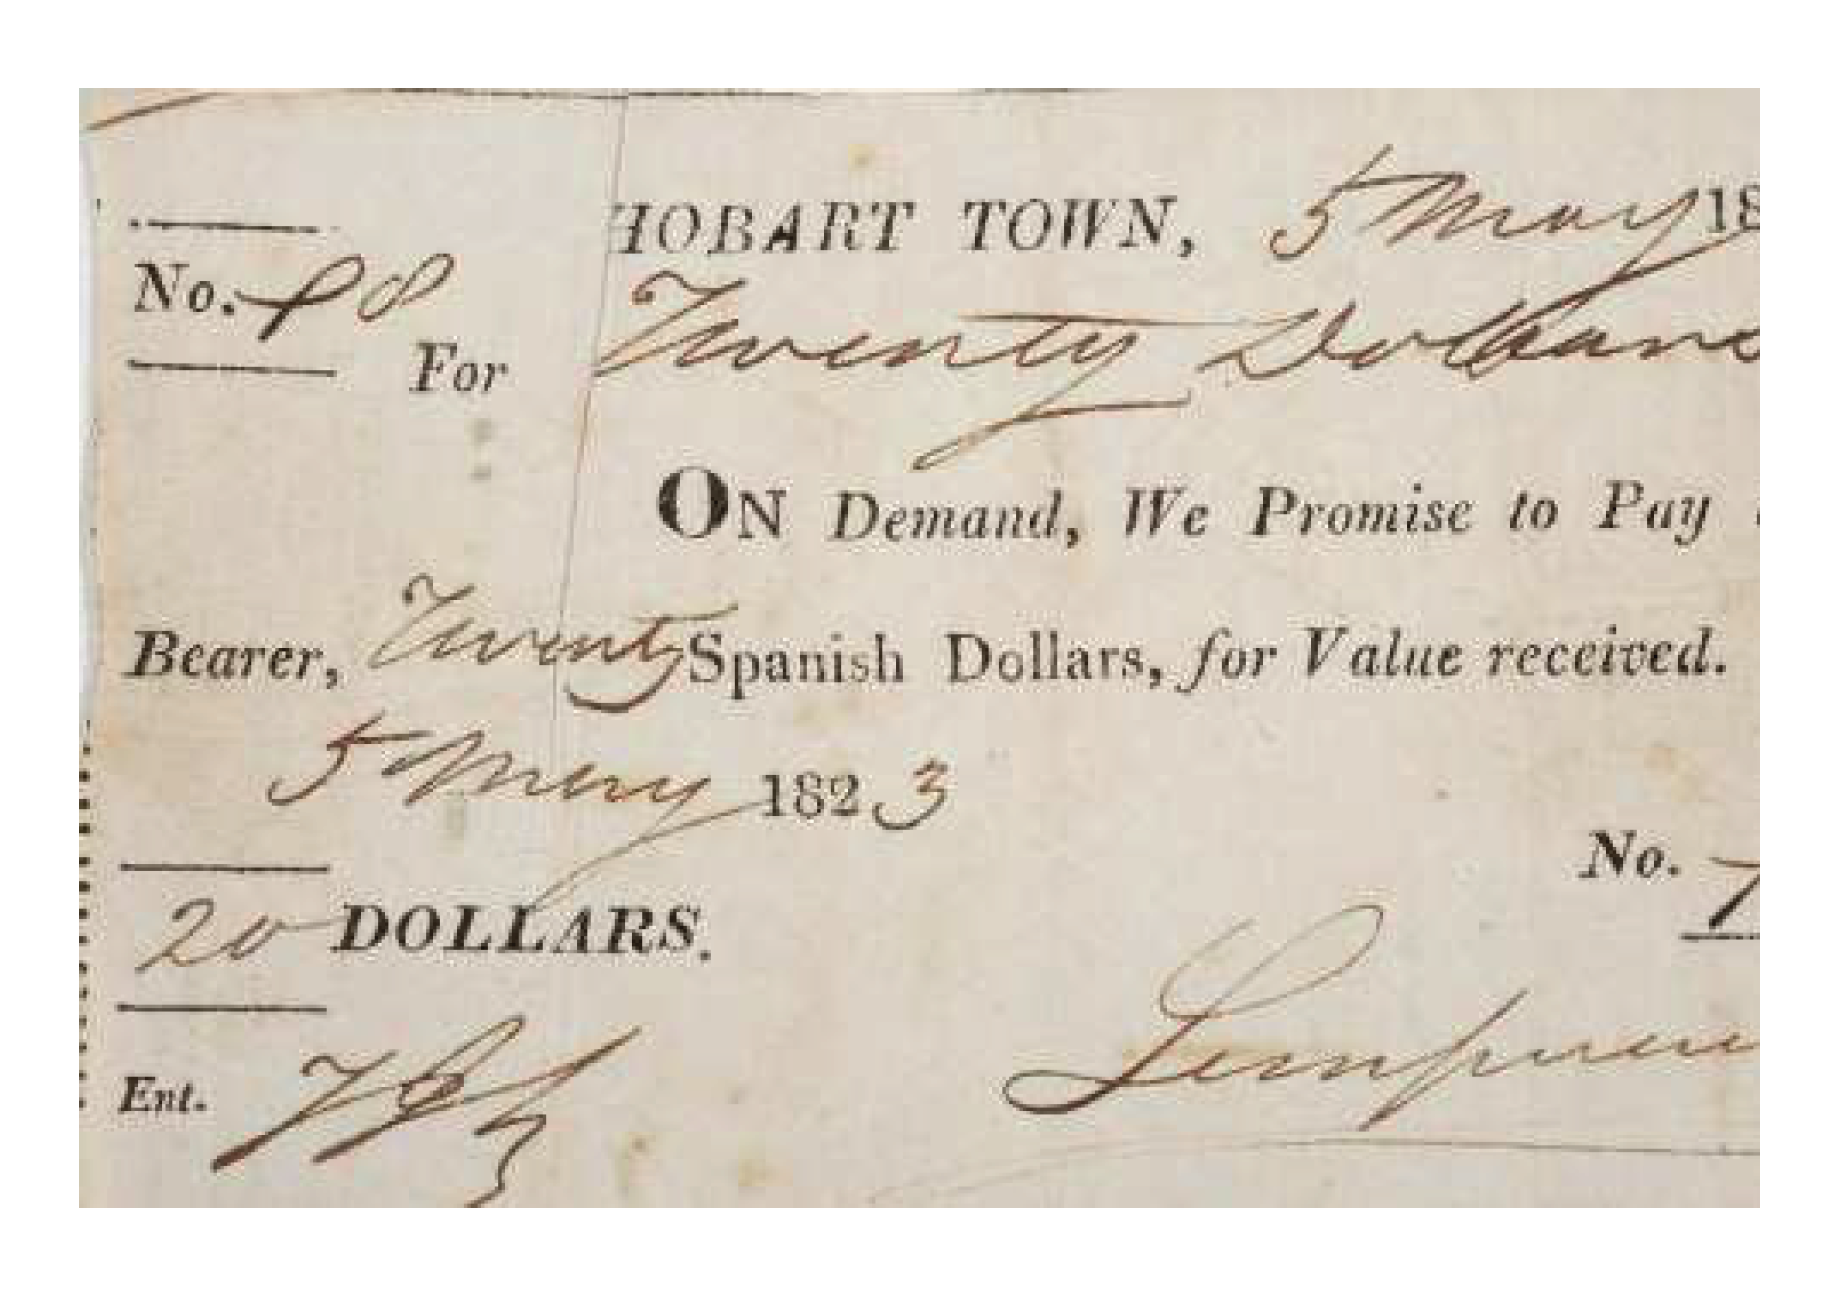 HOBART TOWN, 5 May 18
No. 98
For Twenty Dollars
ON Demand, We Promise to Pay
Bearer, Twenty Spanish Dollars, for Value received.
5 May 1823
No. 
20 DOLLARS.
Ent.